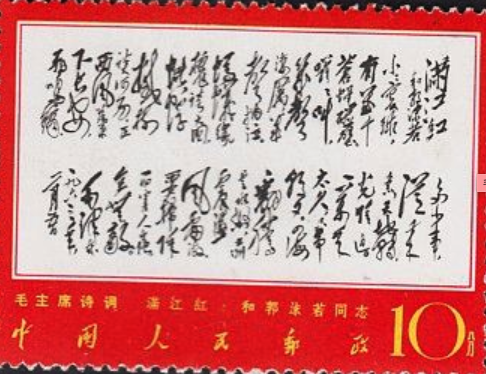 满江红
和郭沫若
小小寰球
有几个
苍蝇碰壁
嗡嗡叫
几声
凄厉几
声抽泣
蚂蚁缘
槐夸大国
蚍蜉
撼树
谈何易正
西风落叶
下长安
飞鸣镝
多少事
从来急
天地转
光阴迫
一万年
太久只争
朝夕四海
翻腾
云水怒五洲
震荡
风雷激
要扫除
一切害人虫
全无敌
毛泽东
一九六三年
一月九日
毛主席诗词 满江红·和郭沫若同志
中国人民邮政 10分